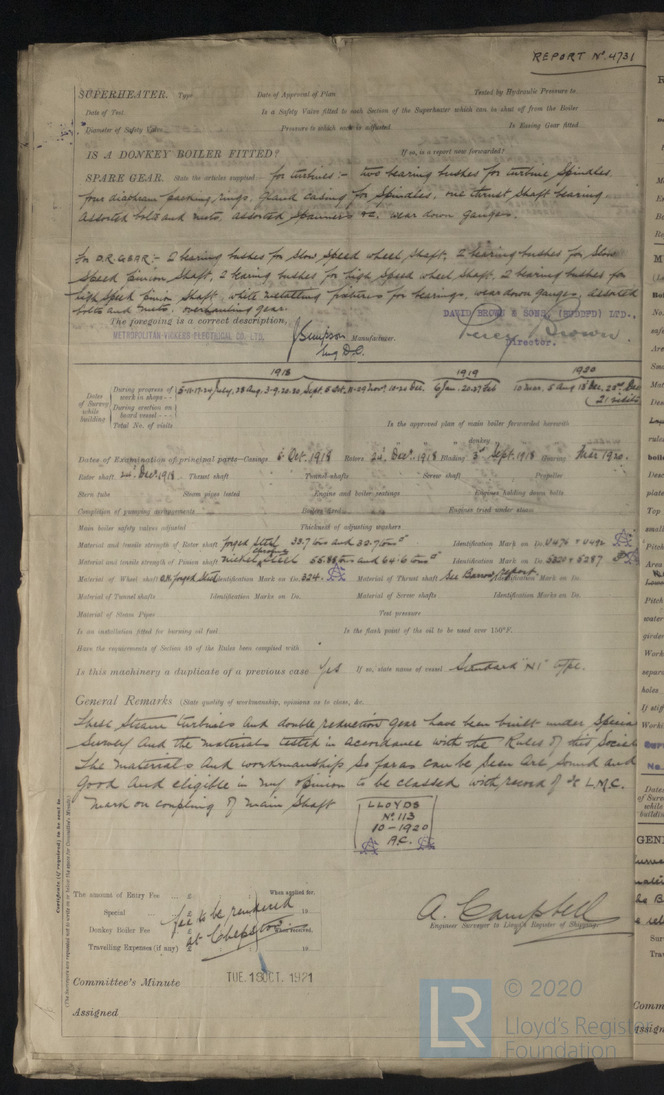 REPORT Nº 4731
SUPERHEATER. Type Date of Approval of Plan Tested by Hydraulic Pressure to
Date of Test Is a Safety Valve fitted to each Section of the Superheater which can be shut off from the Boiler
Diameter of Safety Valve Pressure to which each is adjusted Is Easing Gear fitted
IS A DONKEY BOILER FITTED? If so, is a report now forwarded?
SPARE GEAR. State the articles supplied:— for turbines:- two bearing bushes for turbine Spindles.
four diaphram packing rings, gland casing for Spindles, one thrust shaft bearing
Assorted bolts and nuts, assorted spanners &c. wear down gauges.
for D.R. GEAR:- 2 bearing bushes for slow speed wheel shaft, 2 bearing bushes for slow
speed pinion shaft, 2 bearing bushes for high speed wheel shaft, 2 bearing bushes for
high speed pinion shaft, white metalling fixtures for bearings, wear down gauges, assorted
bolts and nuts. overhauling gear.
The foregoing is a correct description, DAVID BROWN & SONS, (HUDDFD) LTD.,
METROPOLITAN-VICKERS ELECTRICAL CO. LTD. Simpson Manufacturer. Percy Brown
Director.
1918 1919 1920
Dates of Survey while building
During progress of work in shops - - 28 Aug. Sept. 5 Oct. 6 Jan. 20.27 Feb 5 Aug 13 Dec. 22nd Dec
During erection on board vessel - - - (21 visits)
Total No. of visits Is the approved plan of main boiler forwarded herewith
" " donkey " "
Dates of Examination of principal parts—Casings 6 Oct. 1918 Rotors 24 Dec. 1918 Blading 3rd Sept. 1918 Gearing Mar 1920.
Rotor shaft 24 Dec 1918 Thrust shaft Tunnel shafts Screw shaft Propeller
Stern tube Steam pipes tested Engine and boiler seatings Engines holding down bolts
Completion of pumping arrangements Boilers fixed Engines tried under steam
Main boiler safety valves adjusted Thickness of adjusting washers
Material and tensile strength of Rotor shaft forged Steel 33.7 tons and 32.7 tons □" Identification Mark on Do. U476 + U496
Material and tensile strength of Pinion shaft nickel chrome steel 55.88 tons and 64.6 tons □" Identification Mark on Do. 5320 + 5287
Material of Wheel shaft forged steel Identification Mark on Do. 324. Material of Thrust shaft See Barrow Report Identification Mark on Do.
Material of Tunnel shafts Identification Marks on Do. Material of Screw shafts Identification Marks on Do.
Material of Steam Pipes Test pressure
Is an installation fitted for burning oil fuel Is the flash point of the oil to be used over 150°F.
Have the requirements of Section 49 of the Rules been complied with
Is this machinery a duplicate of a previous case Yes If so, state name of vessel Standard "N1" type.
General Remarks (State quality of workmanship, opinions as to class, &c.
These Steam turbines and double reduction gear have been built under Special
Survey and the materials tested in accordance with the Rules of this Society
The materials and workmanship so far as can be seen are sound and
good and eligible in my opinion to be classed with record of + LMC.
Mark on coupling of main shaft
LLOYDS
Nº 113
10-1920
A.C.
The amount of Entry Fee ... £ : : When applied for,
Special ... £ : : 19
Donkey Boiler Fee ... £ : : When received,
Travelling Expenses (if any) £ : : 19
fee to be rendered
at Chepstow
A. Campbell
Engineer Surveyor to Lloyd's Register of Shipping.
Committee's Minute TUE. 18 OCT. 1921
Assigned
LR
© 2020
Lloyd's Register
Foundation